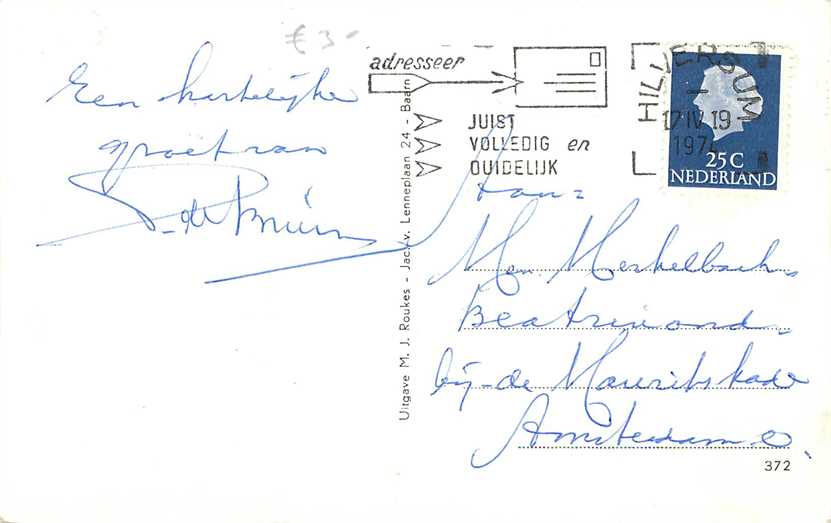 € 3-
Een hartelijke
groet van
P. de Bruin
adresseer
JUIST
VOLLEDIG en
DUIDELIJK
HILVERSUM
17 IV 19
1974
25 C
NEDERLAND
Uitgave M. J. Roukes - Jac. v. Lenneplaan 24 - Baarn
Aan:
Mevr. Merkelbach,
bij-de Mauritskade
Amsterdam-O.
372